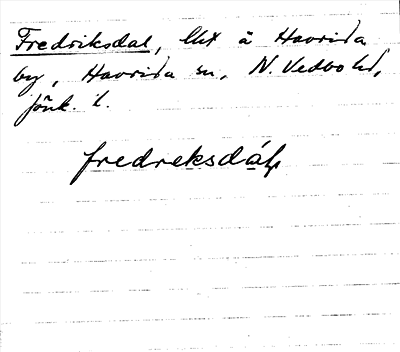 Fredriksdal, lht å Haurida
by, Haurida sn, N. Vedbo hd,
Jönk. l.
fredreksdál